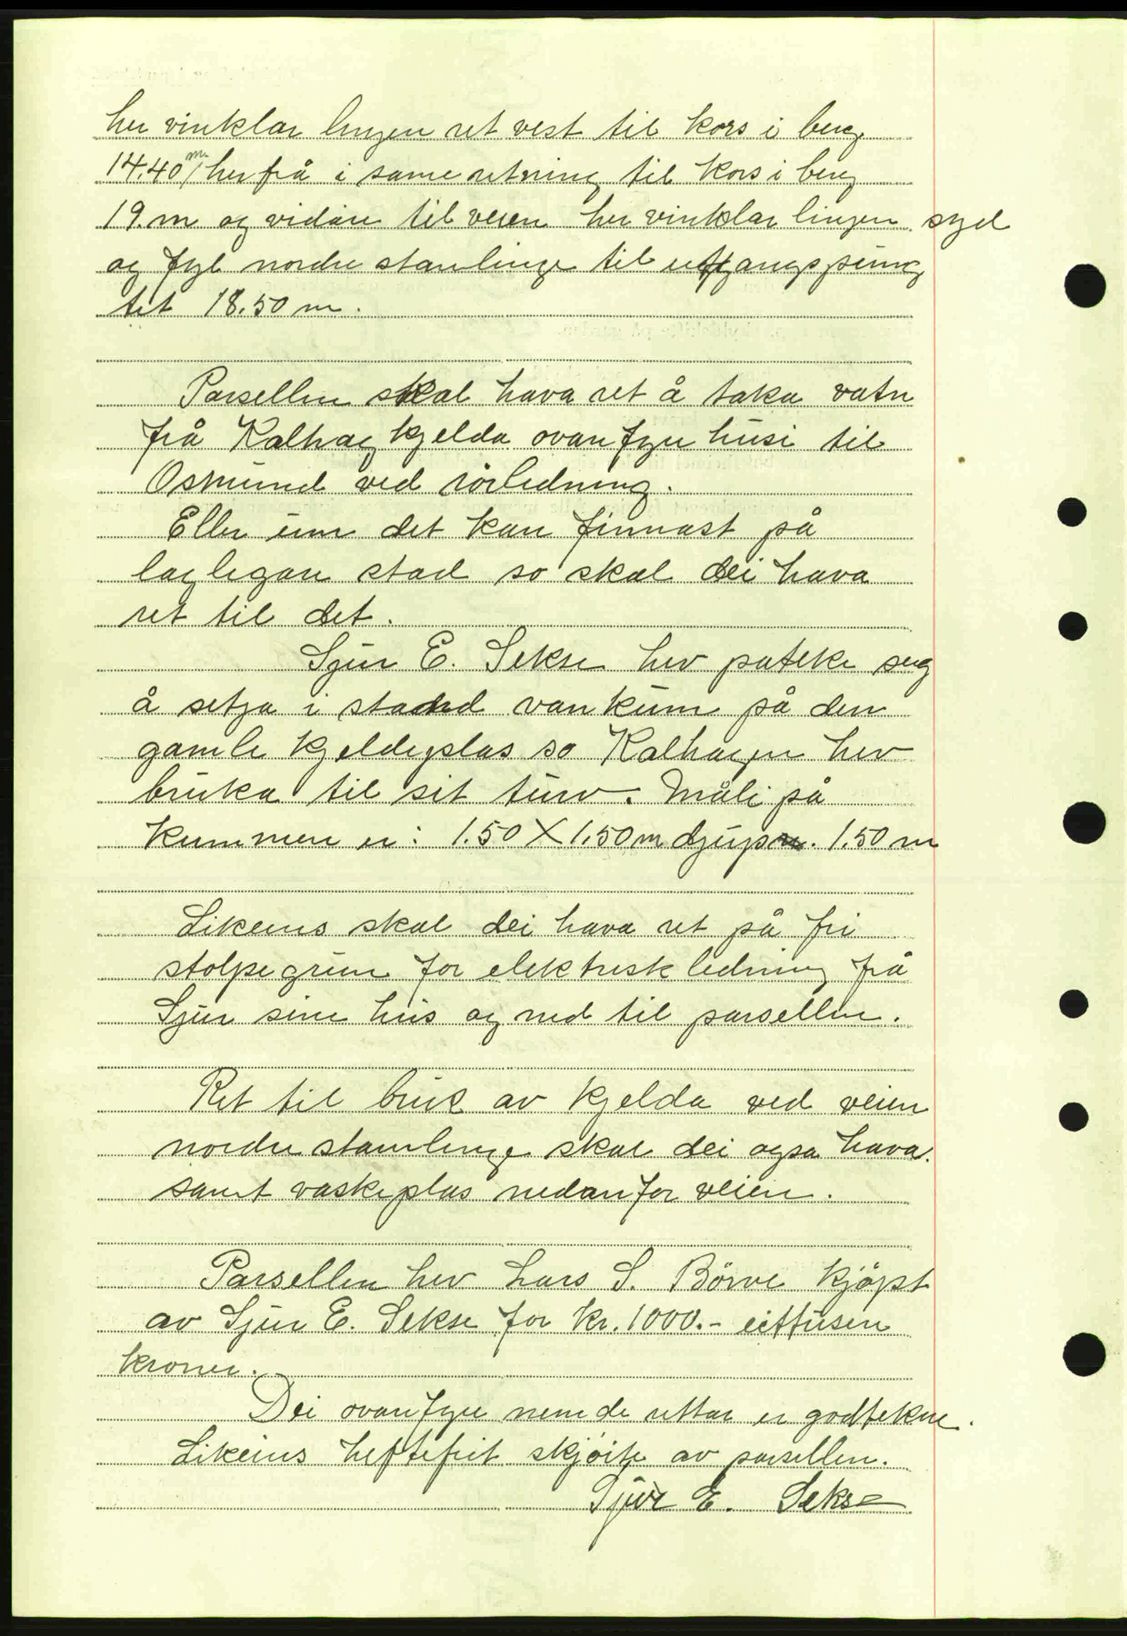 her vinklar lingen ret vest til kors i berg
14.40 m/ her frå i same retning til kors i berg
19. m og vidare til veien her vinklar lingen syd
og fyl nordre stamlinge til utgangspung
tet 18.50 m.
Parsellen skal hava ret å taka vatn
frå Kalhag kjelda ovanfyre husi til
Osmund ved rörledning.
Eller um det kan finnast på
lagligare stad so skal dei hava
ret til det.
Sjur E. Sekse hev pateke seg
å setja i stand vankum på den
gamle kjeldeplas so Kalhagen hev
bruka til sit turv. Måli på
kummen er: 1.50 X 1.50 m djup. 1.50 m
Likeins skal dei hava ret på fri
stolpegrun for elektrisk ledning frå
Sjur sine hus og ned til parsellen.
Ret til bruk av kjelda ved veien
nordre stamlinge skal dei ogsa hava.
samt vaskeplas nedanfor veien.
Parsellen hev Lars S. Börve kjöpt
av Sjur E. Sekse for kr. 1000.- eittusen
kroner.
Dei ovanfyre nemde rettar er godtekne.
Likeins heftefrit skjöite av parsellen.
Sjur E. Sekse